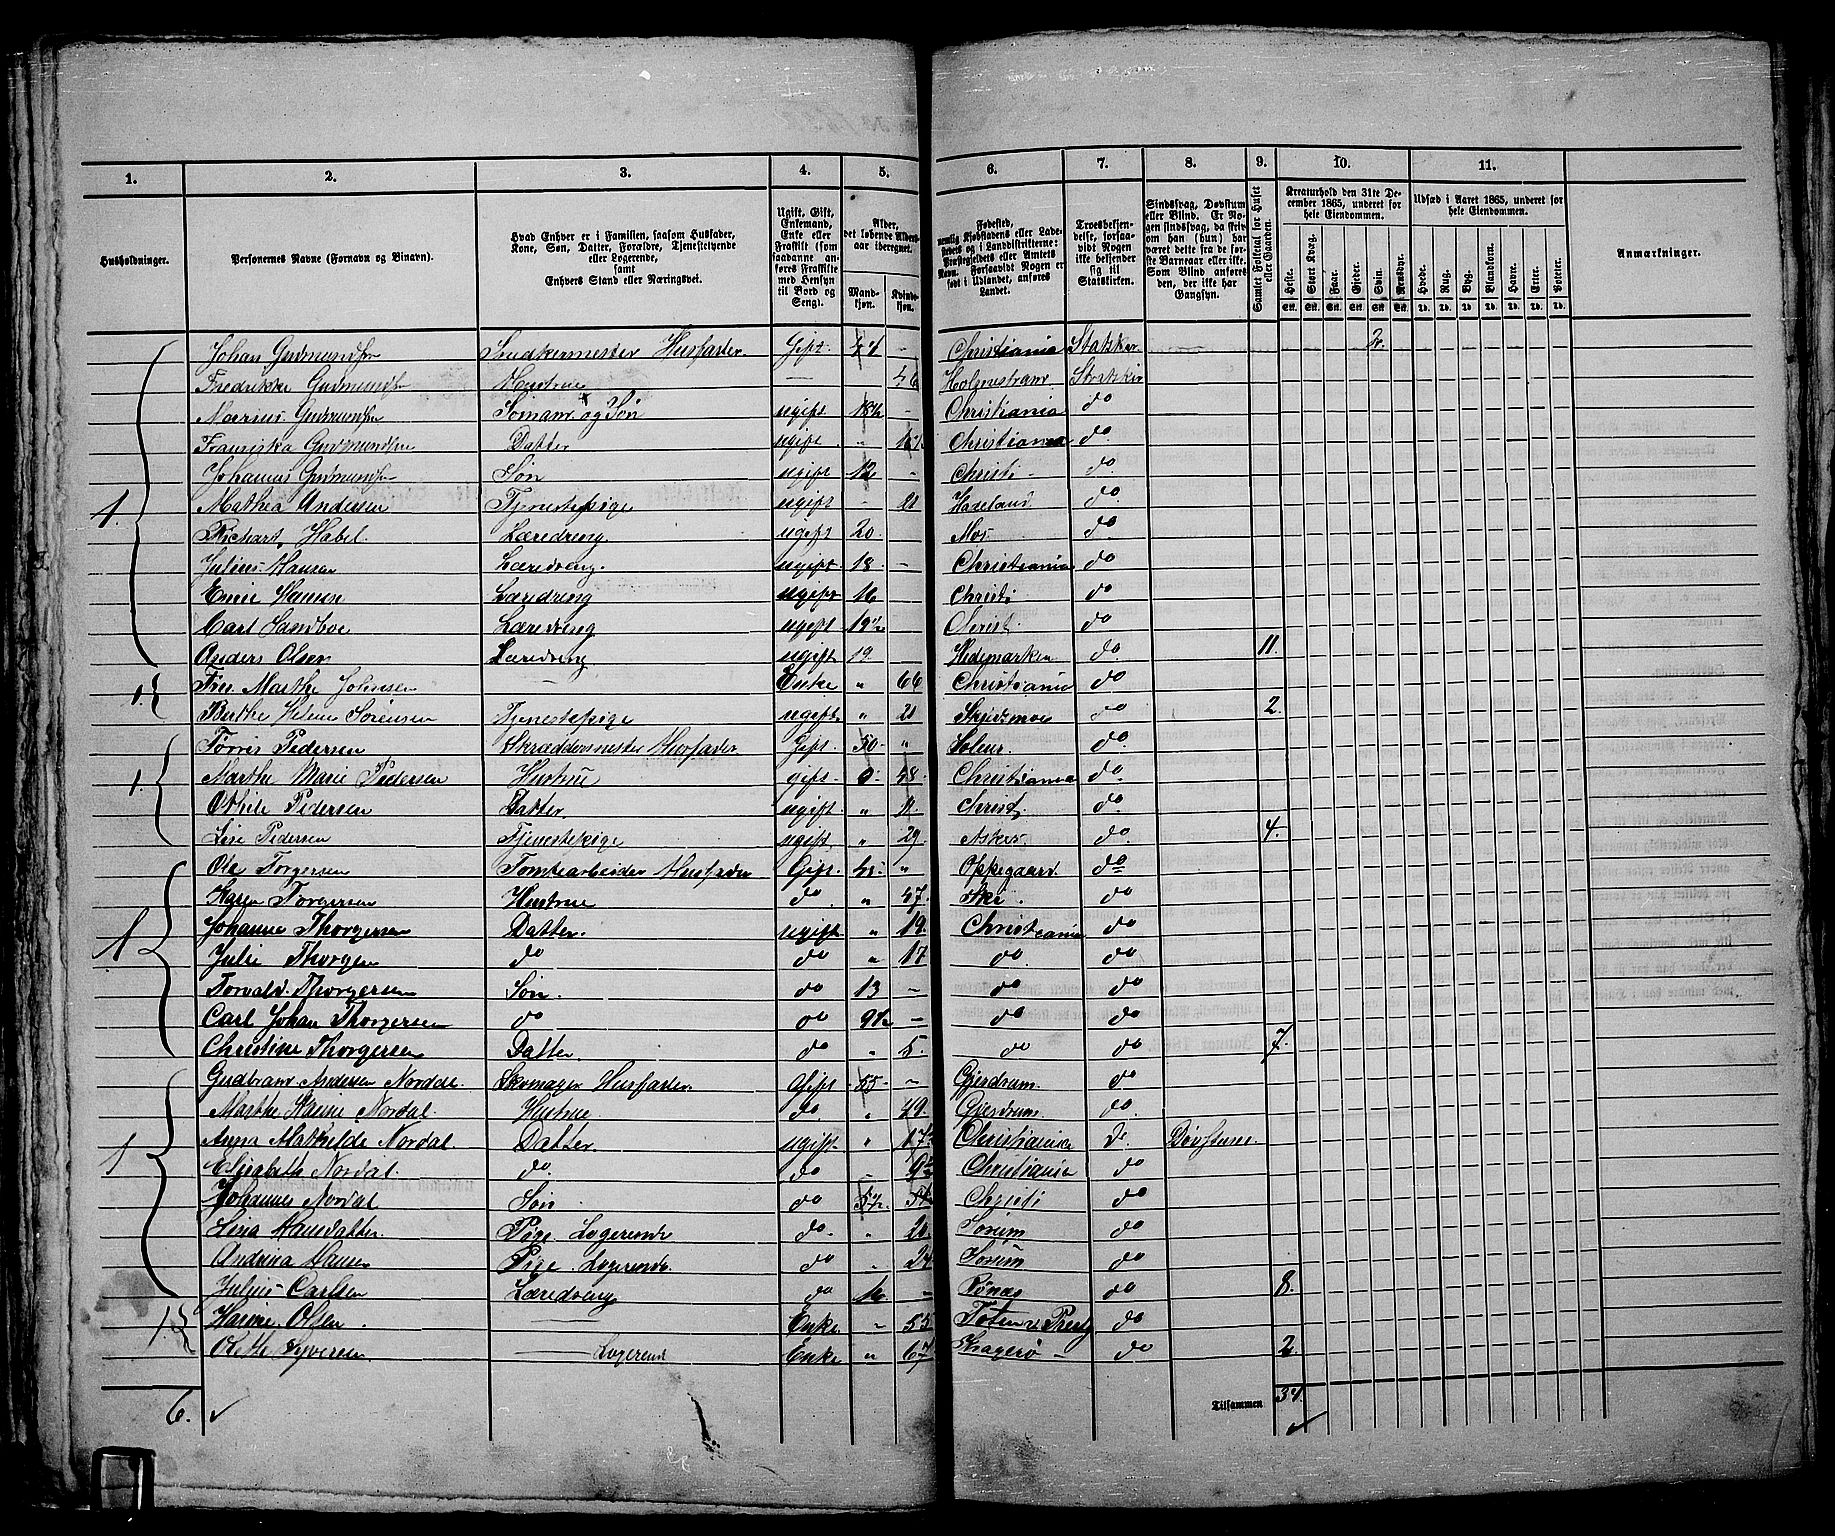 1. 2. 3. 4. 5. 6. 7. 8. 9. 10. 11.
Husholdninger. Personernes Navne (Fornavn og Binavn). Hvad Enhver er i Familien, saasom Husfader, Kone, Søn, Datter, Forældre, Tjenestetyende eller Logerende, samt Enhvers Stand eller Næringsvei. Ugift, Gift, Enkemand, Enke eller Fraskilt (som saadanne anføres Fraskilte med Hensyn til Bord og Seng). Alder, det løbende Alders-aar iberegnet. Mandkjøn. Kvindekjøn. Fødested, nemlig Kjøbstadens eller Ladestedets eller i Landdistrikterne: Præstegjeldets eller Amtets Navn. Forsaavidt Nogen er født i Udlandet, anføres Landet. Troesbekjendelse, forsaavidt Nogen ikke bekjender sig til Statskirken. Sindssvag, Døvstum eller Blind. Er Nogen sindssvag, da skriv om han (hun) har været dette fra de første Barneaar eller ikke. Som Blind anføres den, der ikke har Gangsyn. Samlet Folketal for Huset eller Gaarden. Kreaturhold den 31te December 1865, underet for hele Eiendommen. Heste. Stort Kvæg. Faar. Gjeder. Svin. Rensdyr. Udsæd i Aaret 1865, underet for hele Eiendommen. Hvede. Rug. Byg. Blandkorn. Havre. Erter. Poteter. Anmærkninger.
Johan Gudmundsen Snedkermester Husfader. Gift. Christiania Statskir 2.
Fredrikke Gudmundsen Hustrue — Holmestrand Statskir
Marius Gudmundsen Sømand og Søn ugift 18½ - Christiania do
Fransiska Gudmundsen Datter ugift " Christiania do
Johannes Gudmundsen Søn ugift 12 - Christi- do
1. Mathea Andersen Tjenestepige ugift - 21 Hadeland do
Richart Habel. Læredreng. ugift 20. - Mos do
Julius Hansen Læredreng. ugift. 18. - Christiania do
Emil Hansen Læredreng ugift 16 Christi do
Carl Sandboe Læredreng ugift 19½ Christ. do
Anders Olsen Læredreng ugift. 19. Hedemarken do. 11.
1. Fru Marthe Johnsen — Enke " 66 Christiania do
Berthe Helene Sørensen Tjenestepige ugift. " 21 Skjedsmoe do 2.
Tørris Pedersen Skræddermester Husfader. Gift. 50- " Soleur. do.
1. Marthe Marie Pedersen Hustrue gift. 0. 48. Christiania do
Othile Pedersen Datter. ugift. " 11. Christ. do
Lise Pedersen Tjenestepige ugift. " 29. Asker. do. 4.
Ole Torgersen Tomtearbeider Husfader Gift. " Oppegaard. do
Karen Torgersen Hustrue do. " 47. Ski. do
1 Johanne Thorgersen Datter. ugift " 19. Christiania do
Julie Thorgen do do " 17 do. do
Torvald Thorgersen Søn. do 13 - do do
Carl Johan Thorgersen do do 9½ - do do
Christine Thorgersen Datter. do " 5. do do 7.
Gudbrand Andersen Nordal. Skomager Husfader. Gift 55- - Gjerdrum. do
Marthe Karine Nordal. Hustrue do. " 49. Gjerdrum do.
1 Anna Mathilde Nordal. Datter. ugift. " 17½ Christiania do Døvstum.
Elisabeth Nordal. do. do - 9½ Christiania do
Johannes Nordal Søn do 5½. Christi do
Lina Hansdatter. Pige Logerende do. " Sørum do
Andrina Hansen Pige. Logerende. do " 24 Sørum do
Julius Carlsen Læredreng do 16 - do 8.
1. Karine Olsen. — Enke. " 55 Toten Prestg do
Olette Syversen. — Logerend Enke " 67 Kragerø - do 2.
6. ✓ Tilsammen 34. ✓